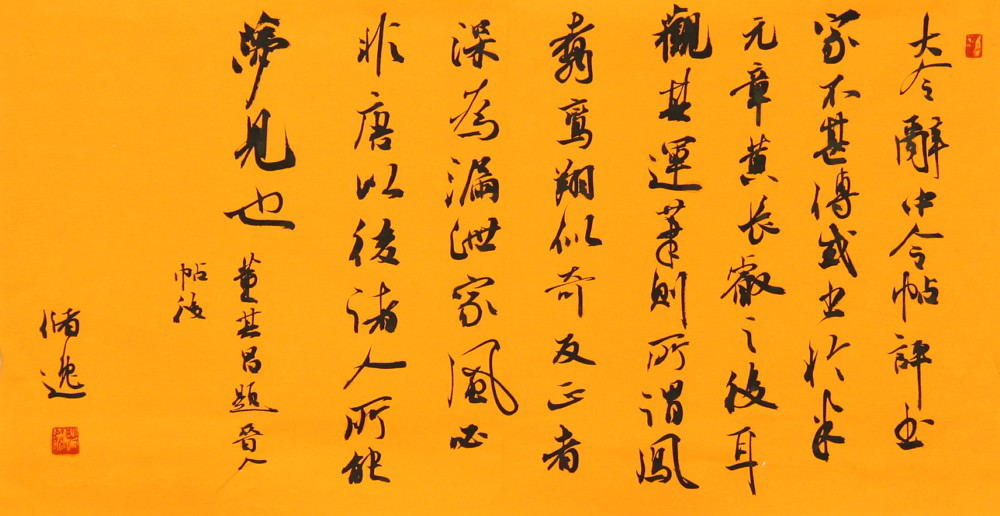 大令辭中令帖評书
家不甚傳或出於米
元章黄长叡之後耳
觀其運筆則所謂鳳
翥鸾翔似奇反正者
深為漏泄家風必
非唐以後諸人所能
夢見也
董其昌題晉人
帖後
儲逸